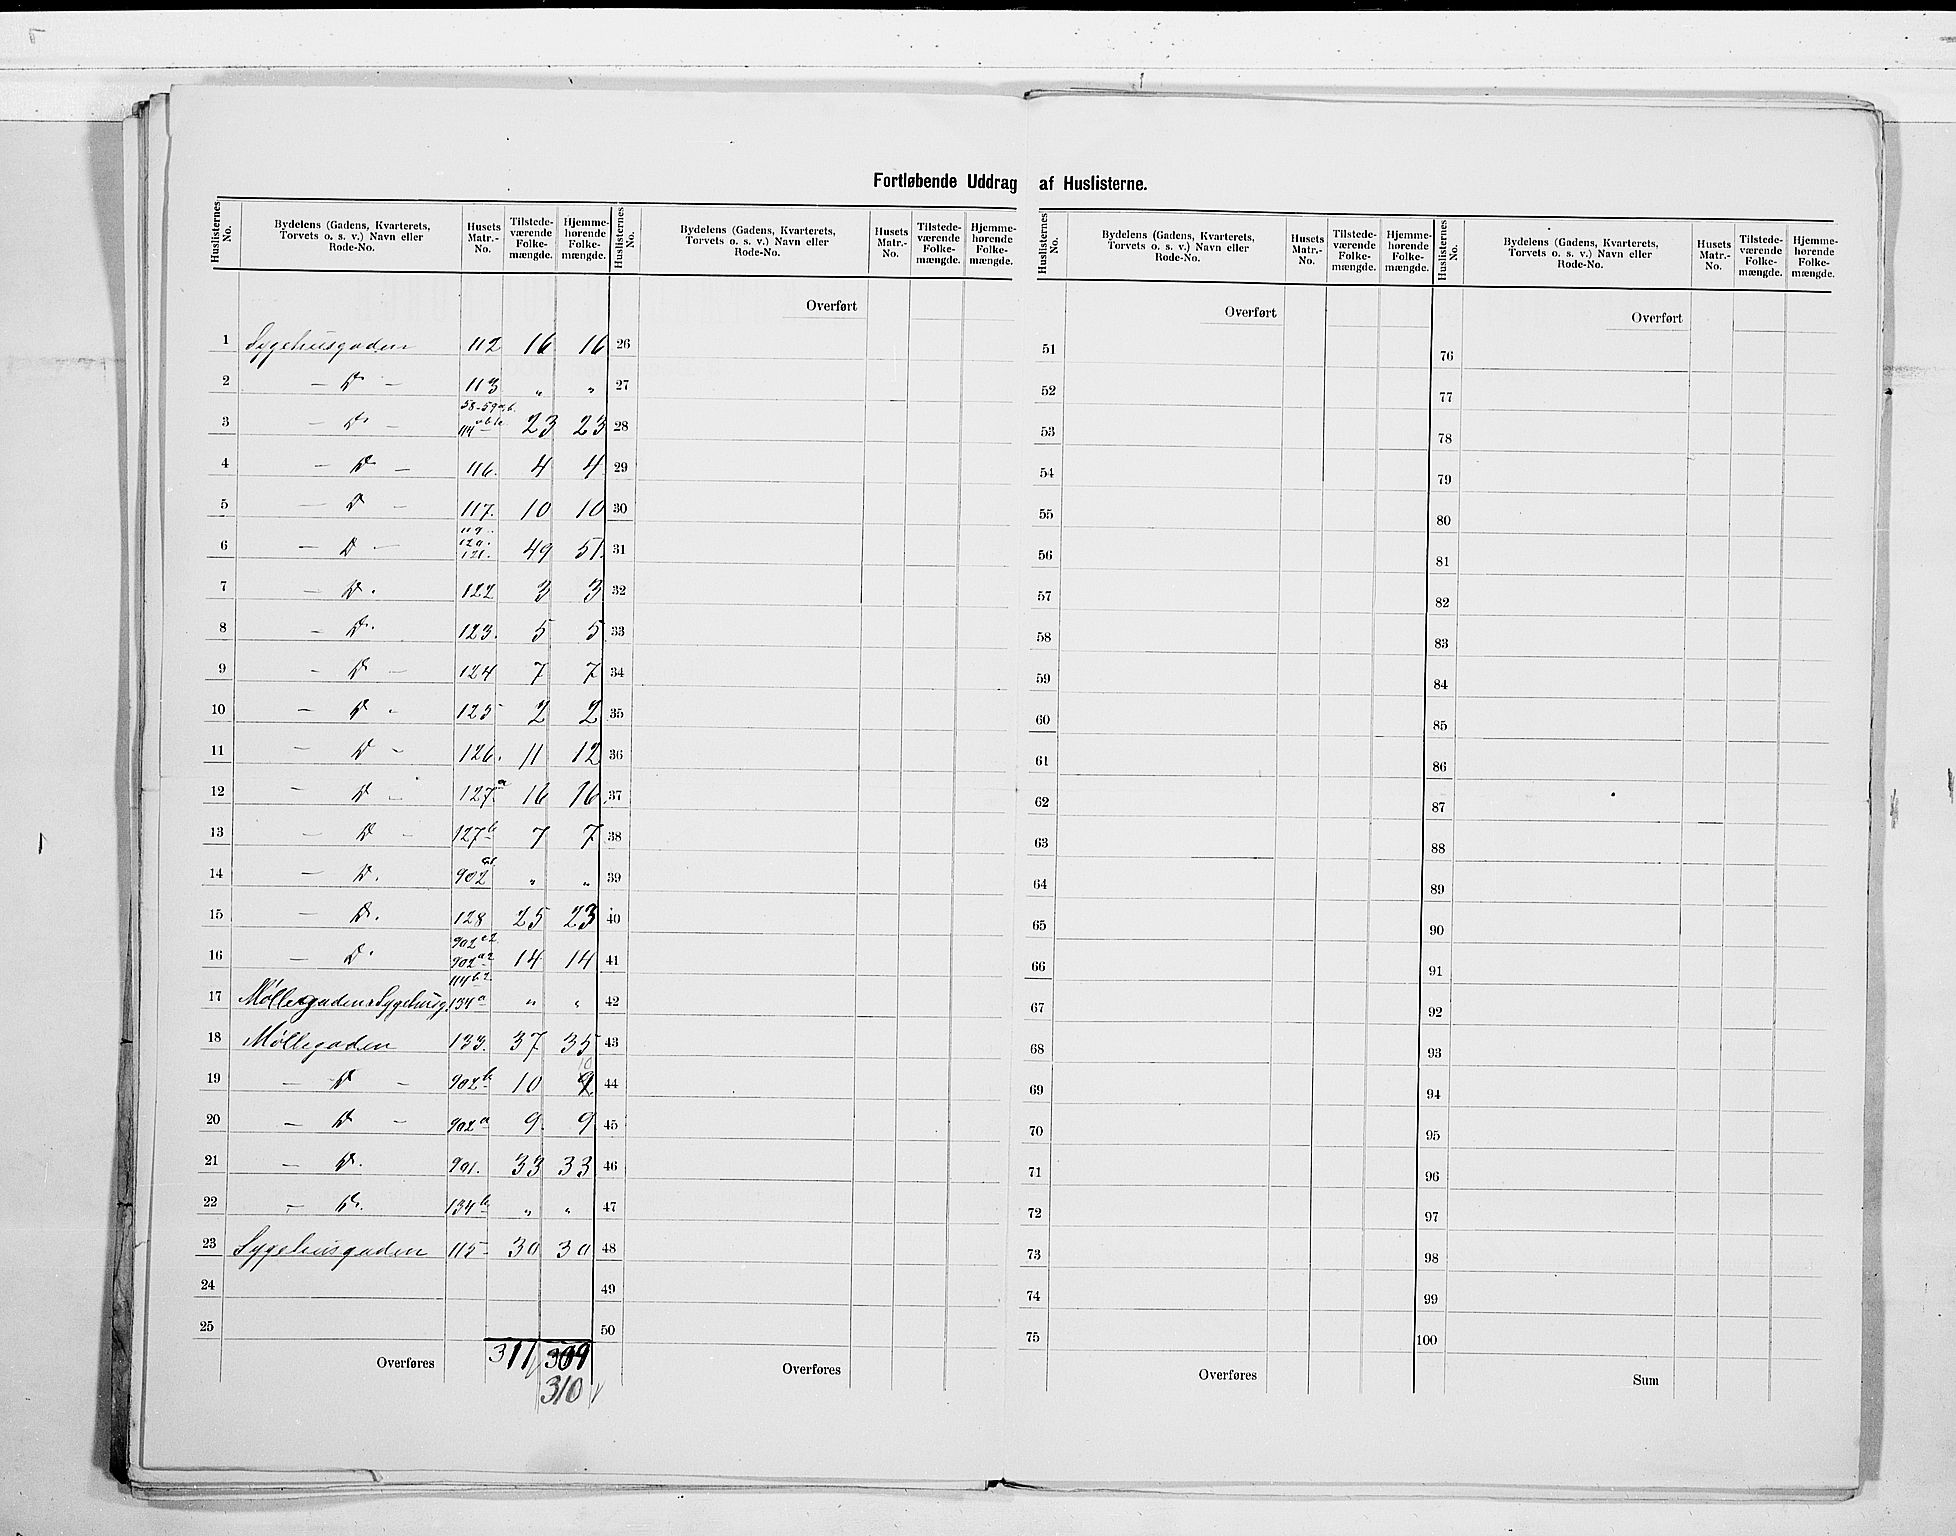 Fortløbende Uddrag af Huslisterne.
Huslisternes No. | Bydelens (Gadens, Kvarterets, Torvets o. s. v.) Navn eller Rode-No. | Husets Matr.-No. | Tilstedeværende Folkemængde. | Hjemmehørende Folkemængde.
1 Sygehusgaden 112 16 16
2 – Do – 113 „ „
3 – Do – 58-59 a,b. 114 a b 1c. 23 23
4 – Do – 116. 4 4
5 – Do – 117. 10 10
6 – Do – 119. 120. 121. 49 51.
7 – Do. 122 3 3
8 – Do. 123. 5 5
9 – Do – 124 7 7
10 – Do – 125 2 2
11 – Do – 126. 11 12
12 – Do – 127 a 16 16
13 – Do – 127 b 7 7
14 – Do. 902 a1 „ „
15 – Do. 128 25 23
16 – Do. 902 a2 14 14
17 Møllegaden & Sygehusg. 114 b2 134 a „ „
18 Møllegaden 133. 37 35
19 – Do – 902 b 10 9 10
20 – Do – 902 a 9 9
21 – Do. 901. 33 33
22 – Do. 134 b „ „
23 Sygehusgaden 115 30 30
24
25
Overføres 311 309
310
Huslisternes No. | Bydelens (Gadens, Kvarterets, Torvets o. s. v.) Navn eller Rode-No. | Husets Matr.-No. | Tilstedeværende Folkemængde. | Hjemmehørende Folkemængde.
Overført
26
27
28
29
30
31
32
33
34
35
36
37
38
39
40
41
42
43
44
45
46
47
48
49
50
Overføres
Huslisternes No. | Bydelens (Gadens, Kvarterets, Torvets o. s. v.) Navn eller Rode-No. | Husets Matr.-No. | Tilstedeværende Folkemængde. | Hjemmehørende Folkemængde.
Overført
51
52
53
54
55
56
57
58
59
60
61
62
63
64
65
66
67
68
69
70
71
72
73
74
75
Overføres
Huslisternes No. | Bydelens (Gadens, Kvarterets, Torvets o. s. v.) Navn eller Rode-No. | Husets Matr.-No. | Tilstedeværende Folkemængde. | Hjemmehørende Folkemængde.
Overført
76
77
78
79
80
81
82
83
84
85
86
87
88
89
90
91
92
93
94
95
96
97
98
99
100
Sum